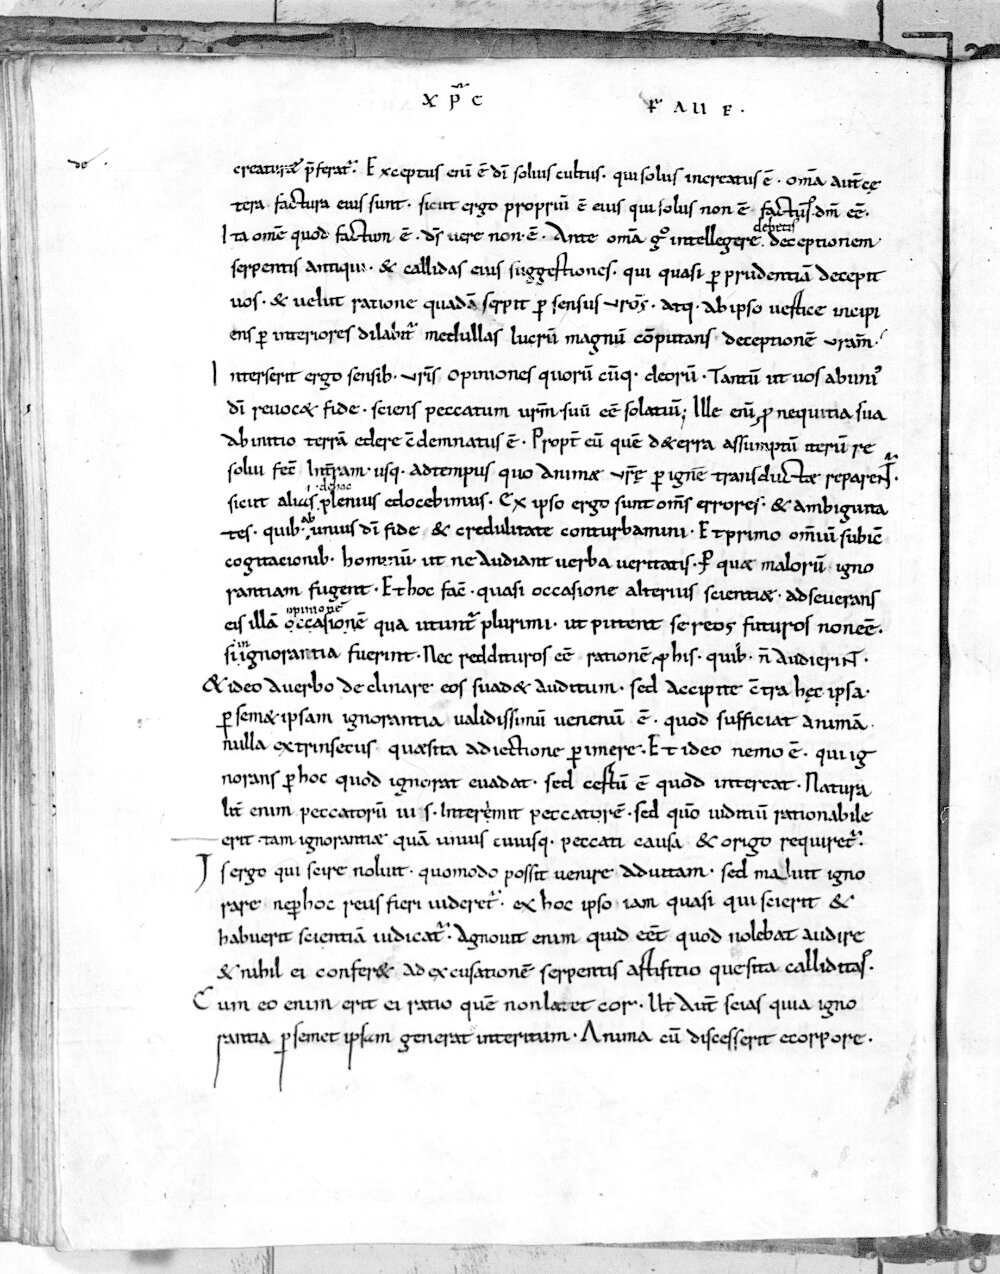 X p̄ c F AU E ·
de ·
creaturæ p̄ferat᷑. Exceptus enī ē dī solius cultus · qui solus increatus ē · om̄a aut̄ cę
tera factura eius sunt · sicut ergo propriū ē eius qui solus non ē factus dm̄ eē ·
Ita omē quod factum ē · ds̄ uere non ē · Ante om̄a g° intellegere debetis deceptionem
serpentis antiqui · & callidas eius suggestiones · qui quasi ꝑ prudentiā decepit
uos · & uelut ratione quadā serpit ꝑ sensus uros̄ · atq · ab ipso uertice incipi
ens ꝑ interiores dilabit᷑ medullas lucrū magnū cōputans deceptionē uram̄ ·
Interserit ergo sensib · uris̄ opiniones quorū cūq · deorū · Tantū ut uos ab uni᷒
dī reuocæ fide · sciens peccatum urm̄ suū eē solatiū; Ille enī ꝓ nequitia sua
ab initio terrā edere c̄demnatus ē · Propt̄ eū quē d& erra assumptū iterū re
solui fec̄ Int̄ram · usq · ad tempus quo animæ urę̄ ꝑ ignē transductæ reparent̄ ·
sicut alias de hoc plenius edocebimus · Ex ipso ergo sunt oms̄ errores · & ambiguita
tes · quib · ab unius dī fide & credulitate conturbamini · Et primo omiū subic̄
cogitacionib · hominū ut ne audiant uerba ueritatis · ꝑ quæ malorū igno
rantiam fugent · Et hoc fac̄ · quasi occasione alterius scientiæ · adseuerans
eis illā occasionē opinionē qua utunt᷑ plurimi · ut putent se reos futuros non eē ·
si in ignorantia fuerint · Nec reddituros eē rationē ꝓ his · quib · n̄ audierint̄ ·
& ideo a uerbo declinare eos suad& auditum · sed accipite c̄tra hęc ipsa ·
ꝑ sem&ipsam ignorantia ualidissimū uenenū ē · quod sufficiat animā
nulla extrinsecus quæsita adiectione ꝑimere · Et ideo nemo ē · qui ig
norans ꝑ hoc quod ignorat euadat · sed certū ē quod intereat · Natura
lit̄ enim peccatorū uis · Interemit peccatorē · sed quō iuditiū rationabile
erit · tam ignorantiæ quā unius cuiusq · peccati causa & origo requiret᷑ ·
Is ergo qui scire noluit · quomodo possit uenire ad uitam · sed maluit igno
rare ne ꝑ hoc reus fieri uideret᷑ · ex hoc ipso iam quasi qui scierit &
habuerit scientiā iudicat᷑ · Agnouit enim quid eēt quod nolebat audire
& nihil ei confer& ad excusationē serpentis artifitio quesita calliditas ·
Cum eo enim erit ei ratio quē non latet cor · Ut aut̄ scias quia igno
rantia ꝑ semet ipsam generat interitum · Anima cū discesserit e corpore ·